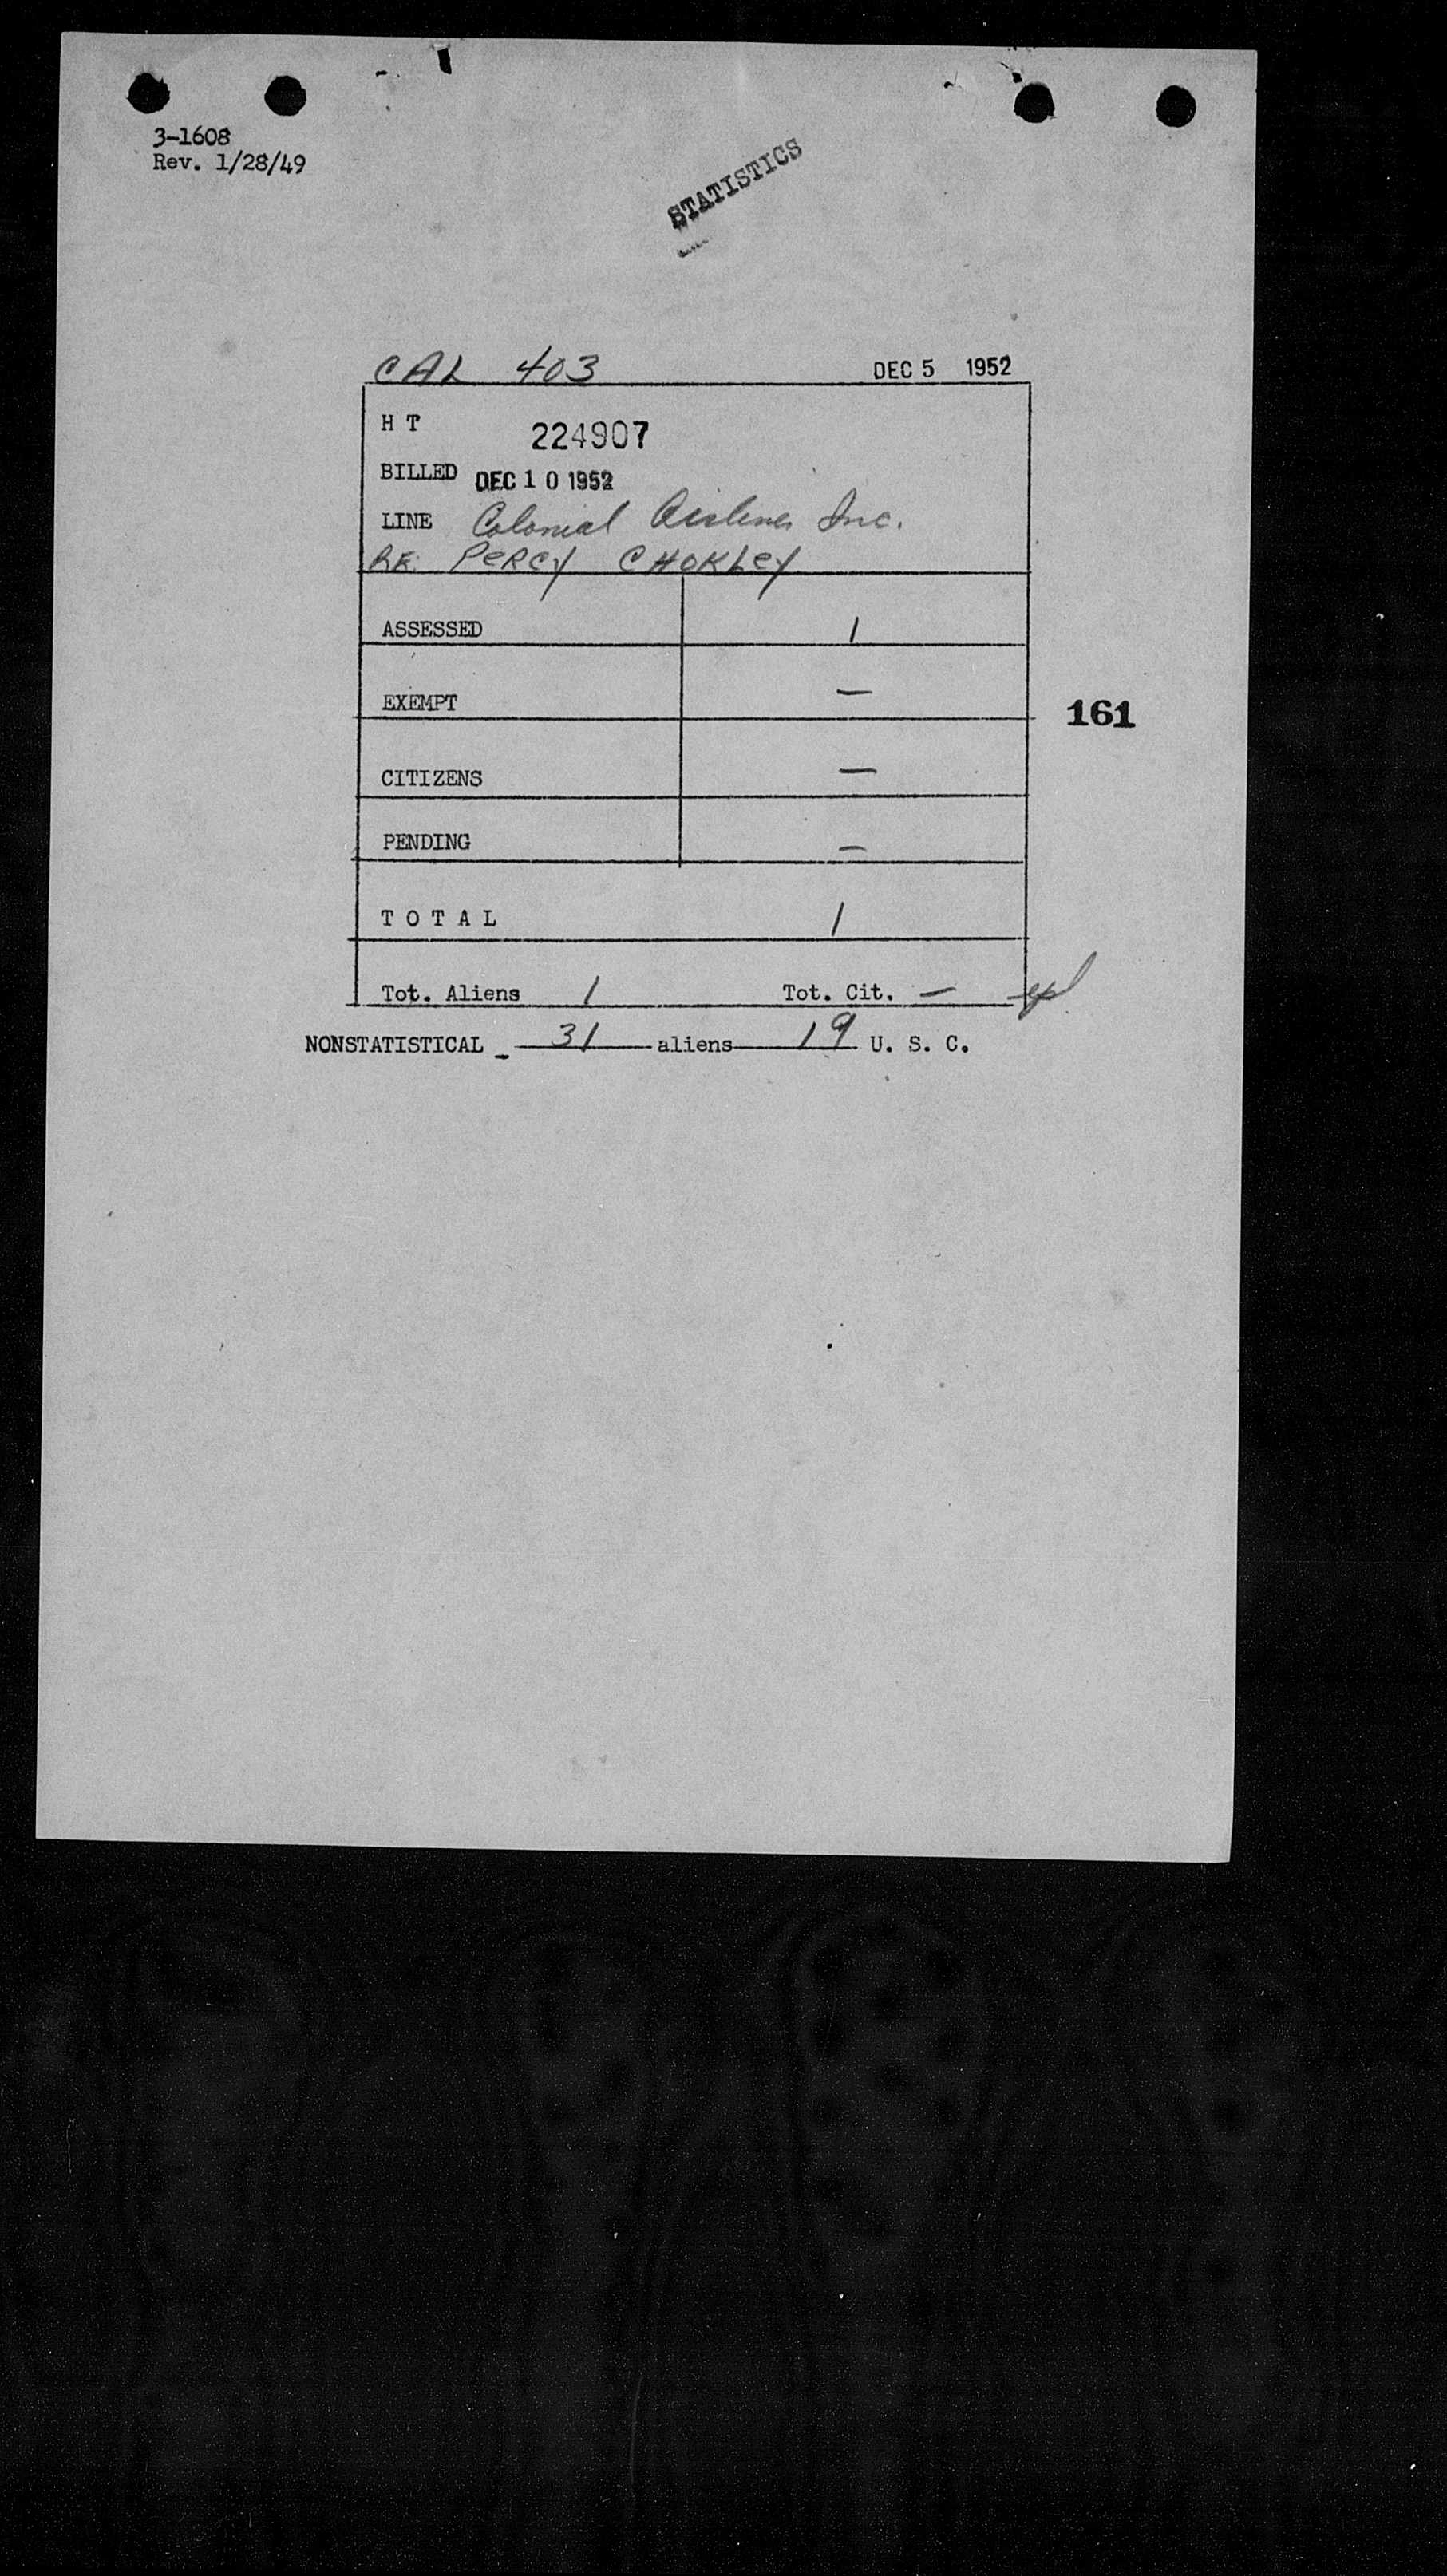 3-1608
Rev. 1/28/49
STATISTICS
CAL 403 DEC 5 1952
H T 224907
BILLED DEC 10 1952
LINE Colonial Airlines Inc.
RE PERCY CHOKLEY
ASSESSED 1
EXEMPT —
161
CITIZENS —
PENDING —
T O T A L 1
Tot. Aliens 1 Tot. Cit. —
NONSTATISTICAL - 31 aliens 19 U. S. C.